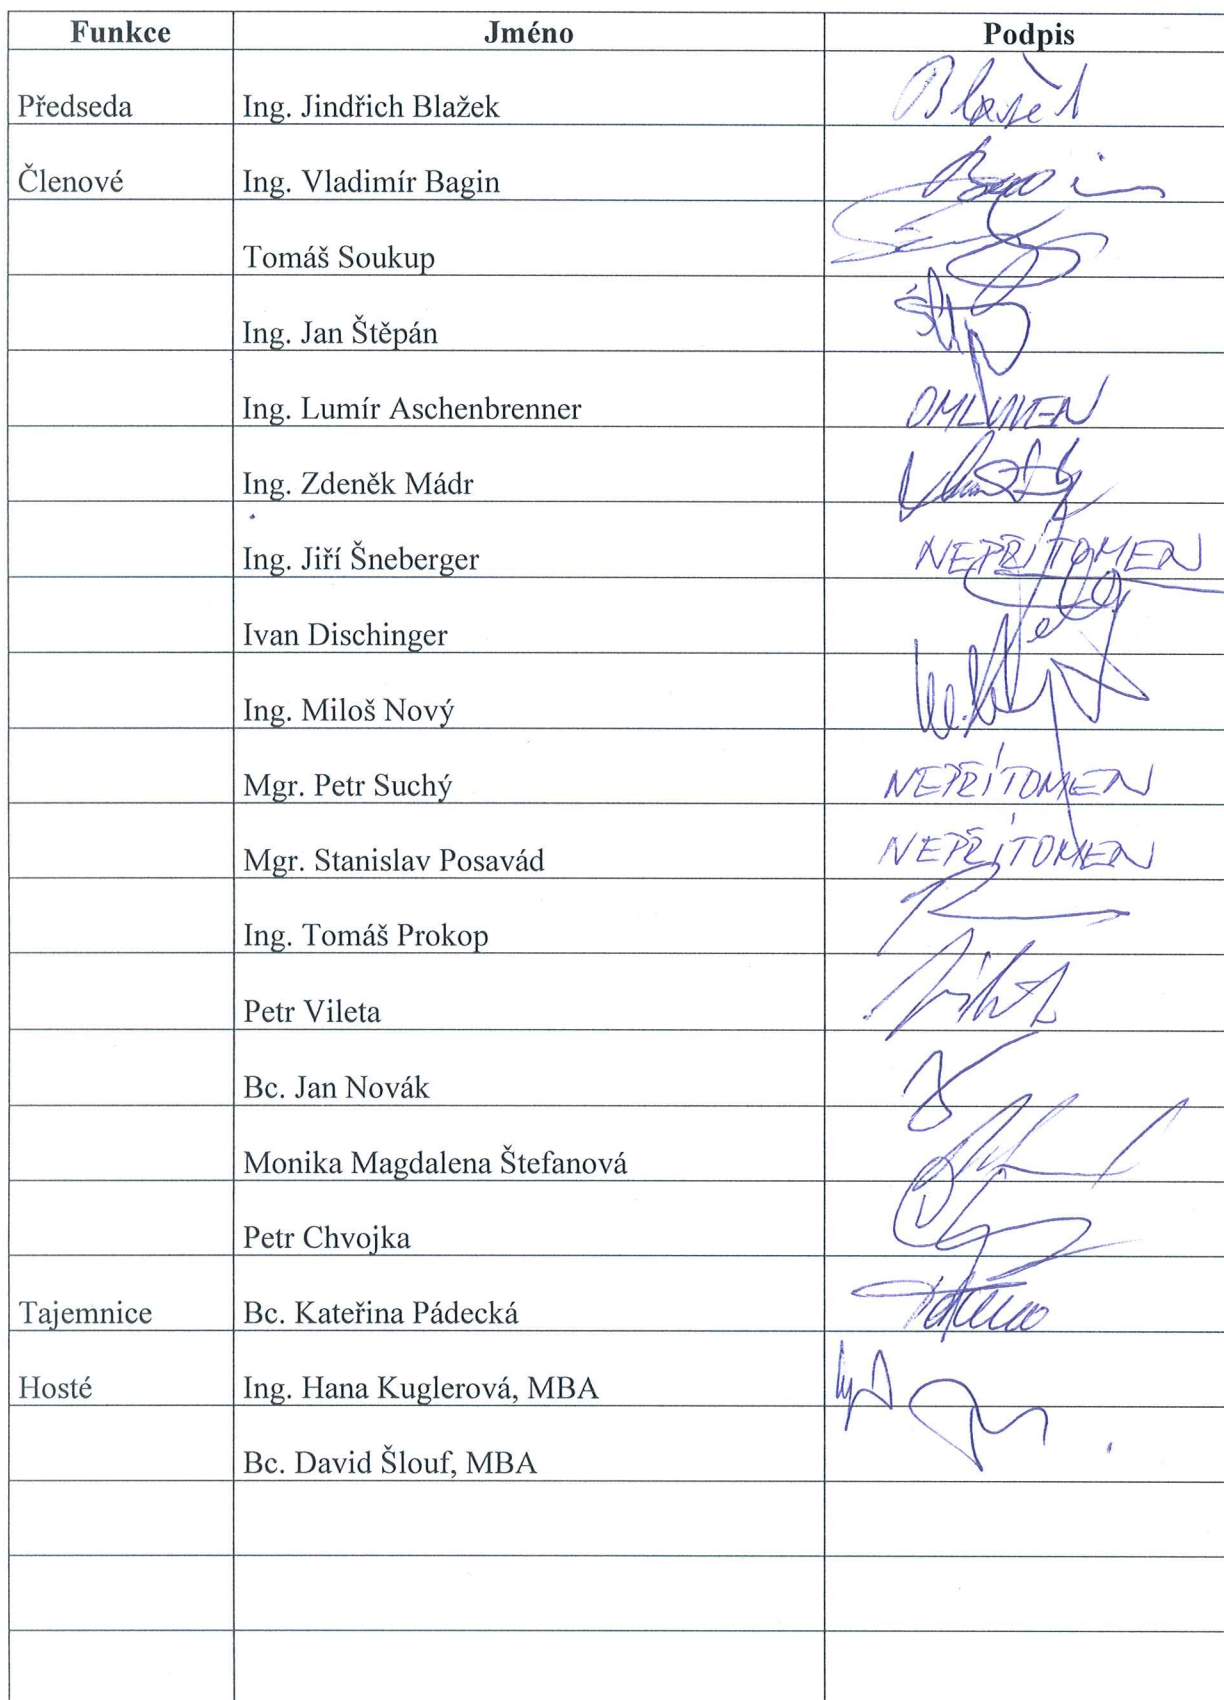 Funkce Jméno Podpis
Předseda Ing. Jindřich Blažek Blažek
Členové Ing. Vladimír Bagin
Tomáš Soukup
Ing. Jan Štěpán
Ing. Lumír Aschenbrenner OMLUVEN
Ing. Zdeněk Mádr
Ing. Jiří Šneberger NEPŘÍTOMEN
Ivan Dischinger
Ing. Miloš Nový
Mgr. Petr Suchý NEPŘÍTOMEN
Mgr. Stanislav Posavád NEPŘÍTOMEN
Ing. Tomáš Prokop
Petr Vileta
Bc. Jan Novák
Monika Magdalena Štefanová
Petr Chvojka
Tajemnice Bc. Kateřina Pádecká
Hosté Ing. Hana Kuglerová, MBA
Bc. David Šlouf, MBA